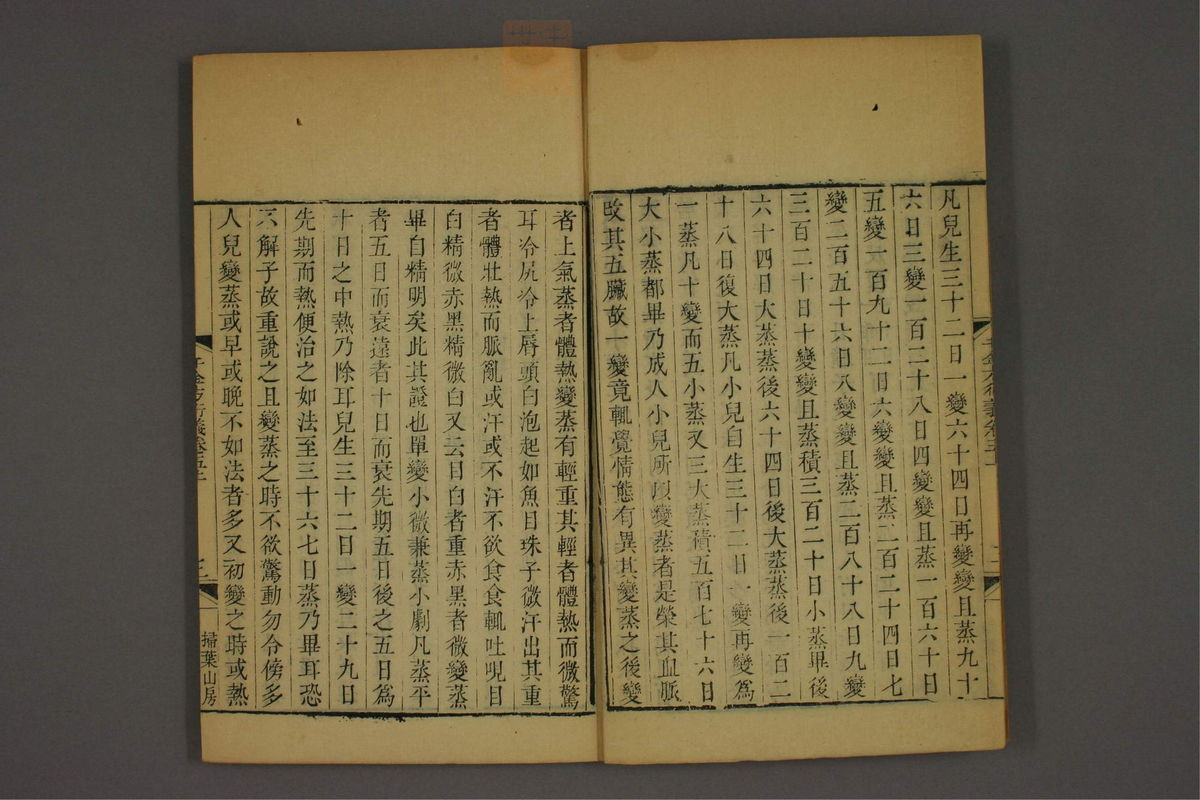 凡兒生三十二日一變六十四日再變變且蒸九十
六日三變一百二十八日四變變且蒸一百六十日
五變一百九十二日六變變且蒸二百二十四日七
變二百五十六日八變變且蒸二百八十八日九變
三百二十日十變變且蒸積三百二十日小蒸畢後
六十四日大蒸蒸後六十四日後大蒸蒸後一百二
十八日復大蒸凡小兒自生三十二日一變再變爲
一蒸凡十變而五小蒸又三大蒸積五百七十六日
大小蒸都畢乃成人小兒所以變蒸者是榮其血脈
改其五臟故一變竟輒覺情態有異其變蒸之後變
者上氣蒸者體熱變蒸有輕重其輕者體熱而微驚
耳冷尻冷上脣頭白泡起如魚目珠子微汗出其重
者體壯熱而脈亂或汗或不汗不欲食食輒吐哯目
白精微赤黑精微白又云目白者重赤黑者微變蒸
畢自精明矣此其證也單變小微兼蒸小劇凡蒸平
者五日而衰遠者十日而衰先期五日後之五日爲
十日之中熱乃除耳兒生三十二日一變二十九日
先期而熱便治之如法至三十六七日蒸乃畢耳恐
不解子故重說之且變蒸之時不欲驚動勿令傍多
人兒變蒸或早或晚不如法者多又初變之時或熱
千金方衍義卷五上
掃葉山房